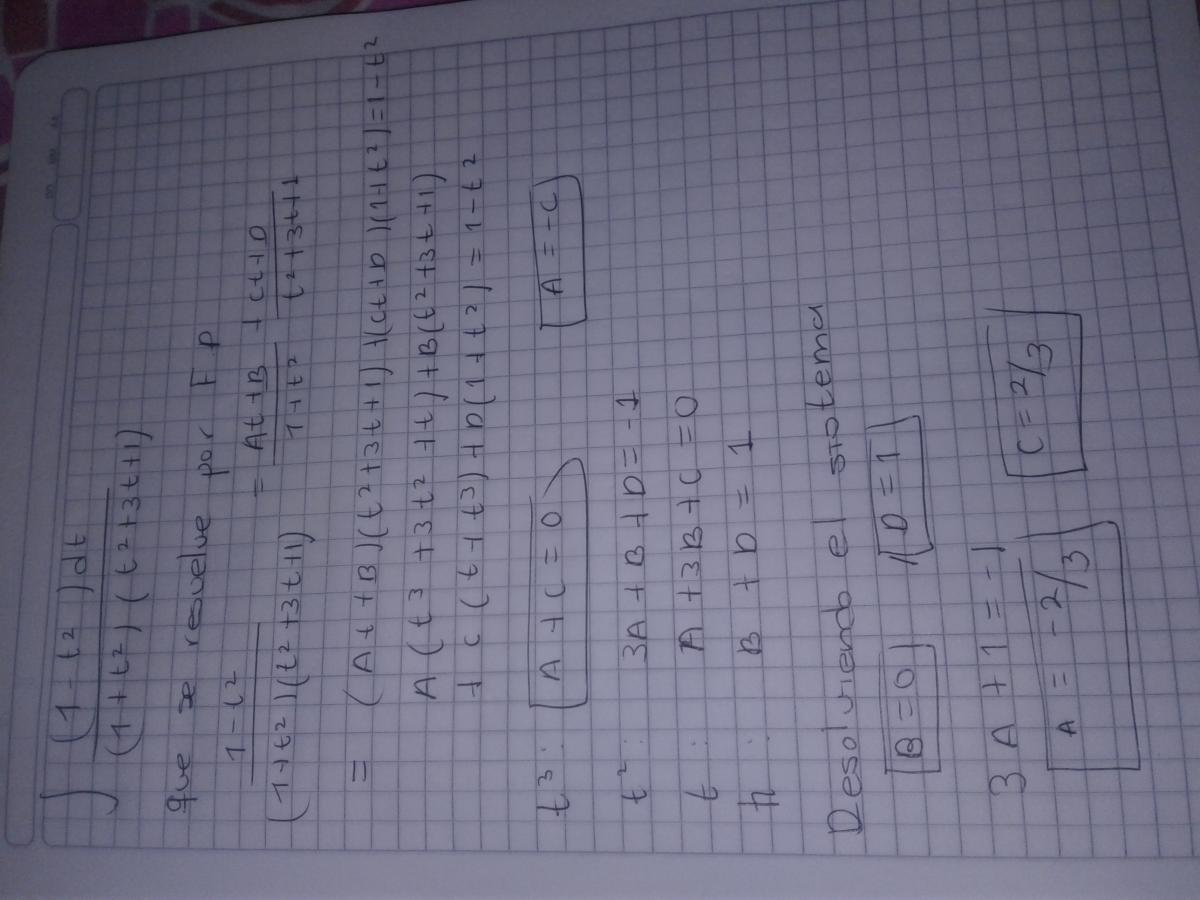 ∫ (1 - t²) dt / (1 + t²) (t² + 3t + 1)
que se resuelve por F P
1 - t² / (1 + t²)(t² + 3t + 1) = At + B / 1 + t² + Ct + D / t² + 3t + 1
= (At + B)(t² + 3t + 1) + (Ct + D)(1 + t²) = 1 - t²
A(t³ + 3t² + t) + B(t² + 3t + 1)
+ C(t + t³) + D(1 + t²) = 1 - t²
t³: A + C = 0 A = -C
t²: 3A + B + D = -1
t: A + 3B + C = 0
: B + D = 1
Desolviendo el sistema
B = 0 D = 1
3A + 1 = -1
A = -2/3 C = 2/3